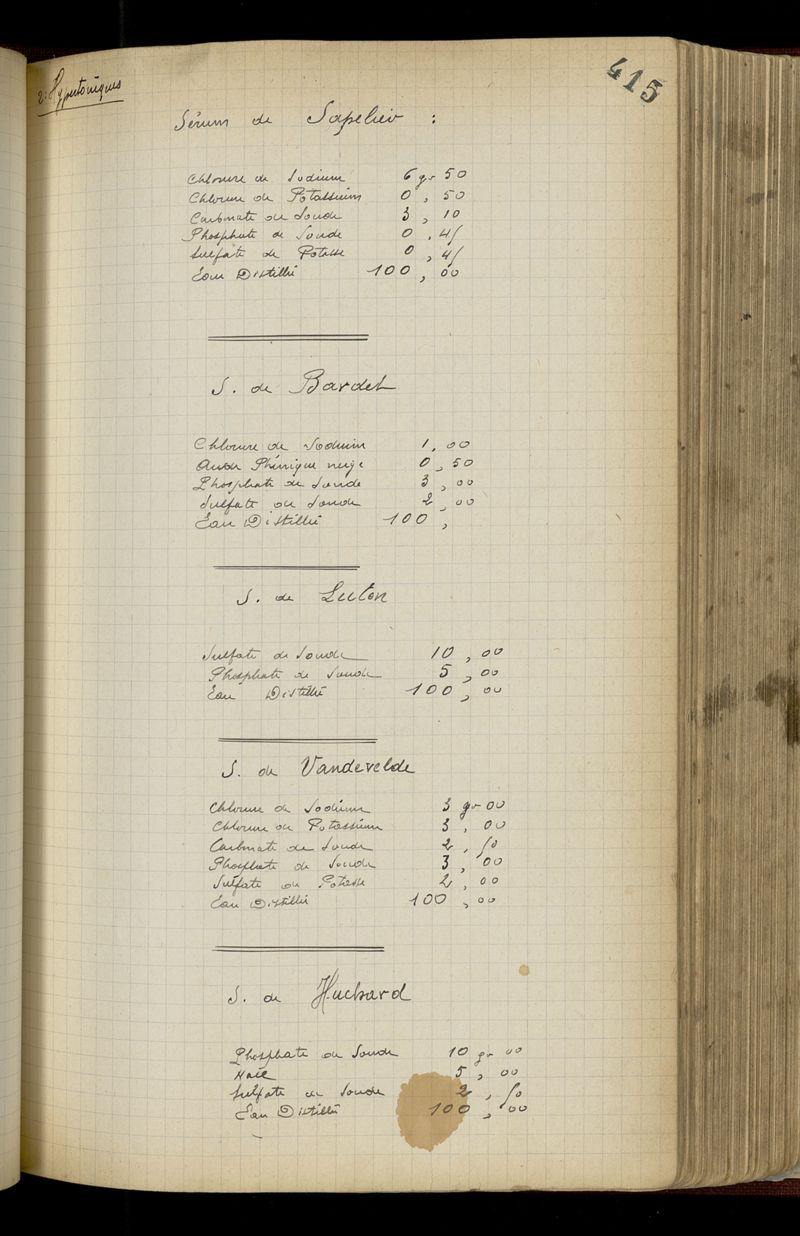 415
2° Hypertoniques
Sérum de Sapelier :
Chlorure de Sodium 6 gr 50
Chlorure de Potassium 0 , 50
Carbonate de Soude 3 , 10
Phosphate de Soude 0 , 45
Sulfate de Potasse 0 , 45
Eau Distillée 100 , 00
S. de Bardet
Chlorure de Sodium 1 , 00
Acide Phénique neige 0 , 50
Phosphate de Soude 3 , 00
Sulfate de Soude 2 , 00
Eau Distillée 100 ,
S. de Luton
Sulfate de Soude 10 , 00
Phosphate de Soude 5 , 00
Eau Distillée 100 , 00
S. de Vandevelde
Chlorure de Sodium 3 gr 00
Chlorure de Potassium 3 , 00
Carbonate de Soude 2 , 50
Phosphate de Soude 3 , 00
Sulfate de Potasse 2 , 00
Eau Distillée 100 , 00
S. de Huchard
Phosphate de Soude 10 gr 00
NaCl 5 , 00
Sulfate de Soude 2 , 50
Eau Distillée 100 , 00